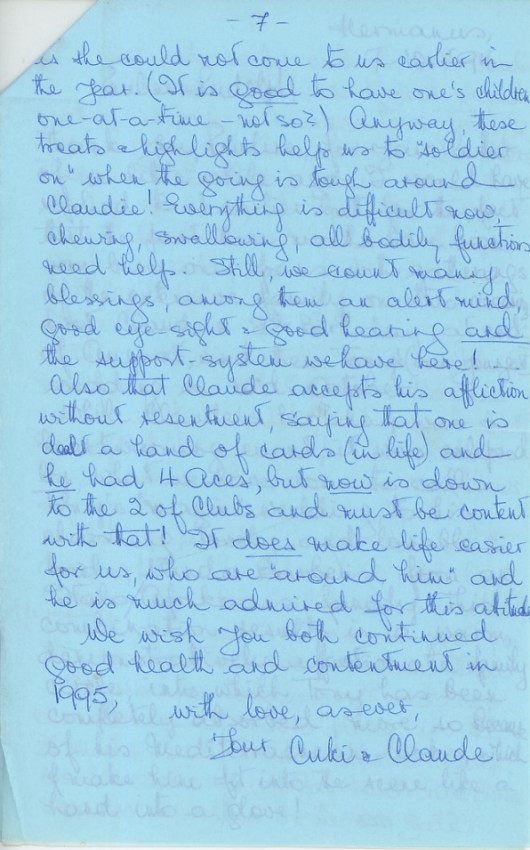 - 7 -
is she could not come to us earlier in
the year. (It is good to have one's children
one-at-a-time - not so?) Anyway, these
treats & highlights help us to "soldier
on" when the going is tough around
Claudie! Everything is difficult now
chewing, swallowing, all bodily functions
need help. Still, we count many
blessings, among them an alert mind,
good eye sight & good hearing and
the support-system we have here!
Also that Claude accepts his affliction
without resentment, saying that one is
dealt a hand of cards (in life) and
he had 4 Aces, but now is down
to the 2 of Clubs and must be content
with that! It does make life easier
for us, who are "around him" and
he is much admired for this attitude
We wish you both continued
good health and contentment in
1995,
with love, as ever,
Your Cuki & Claude